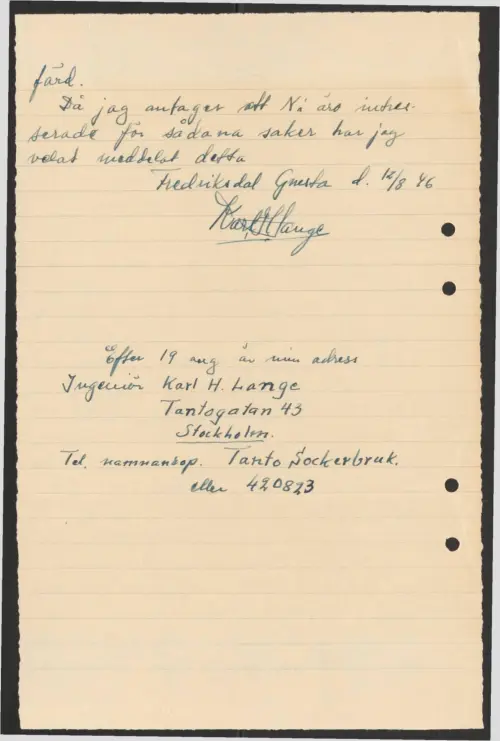 färd.
Då jag antager att Ni äro intres-
serade för sådana saker har jag
velat meddelat detta
Fredriksdal Gnesta d. 12/8 46
Karl H Lange
Efter 19 aug är min adress
Ingeniör Karl H. Lange
Tantogatan 43
Stockholm.
Tel. namnanrop. Tanto Sockerbruk.
eller 420823